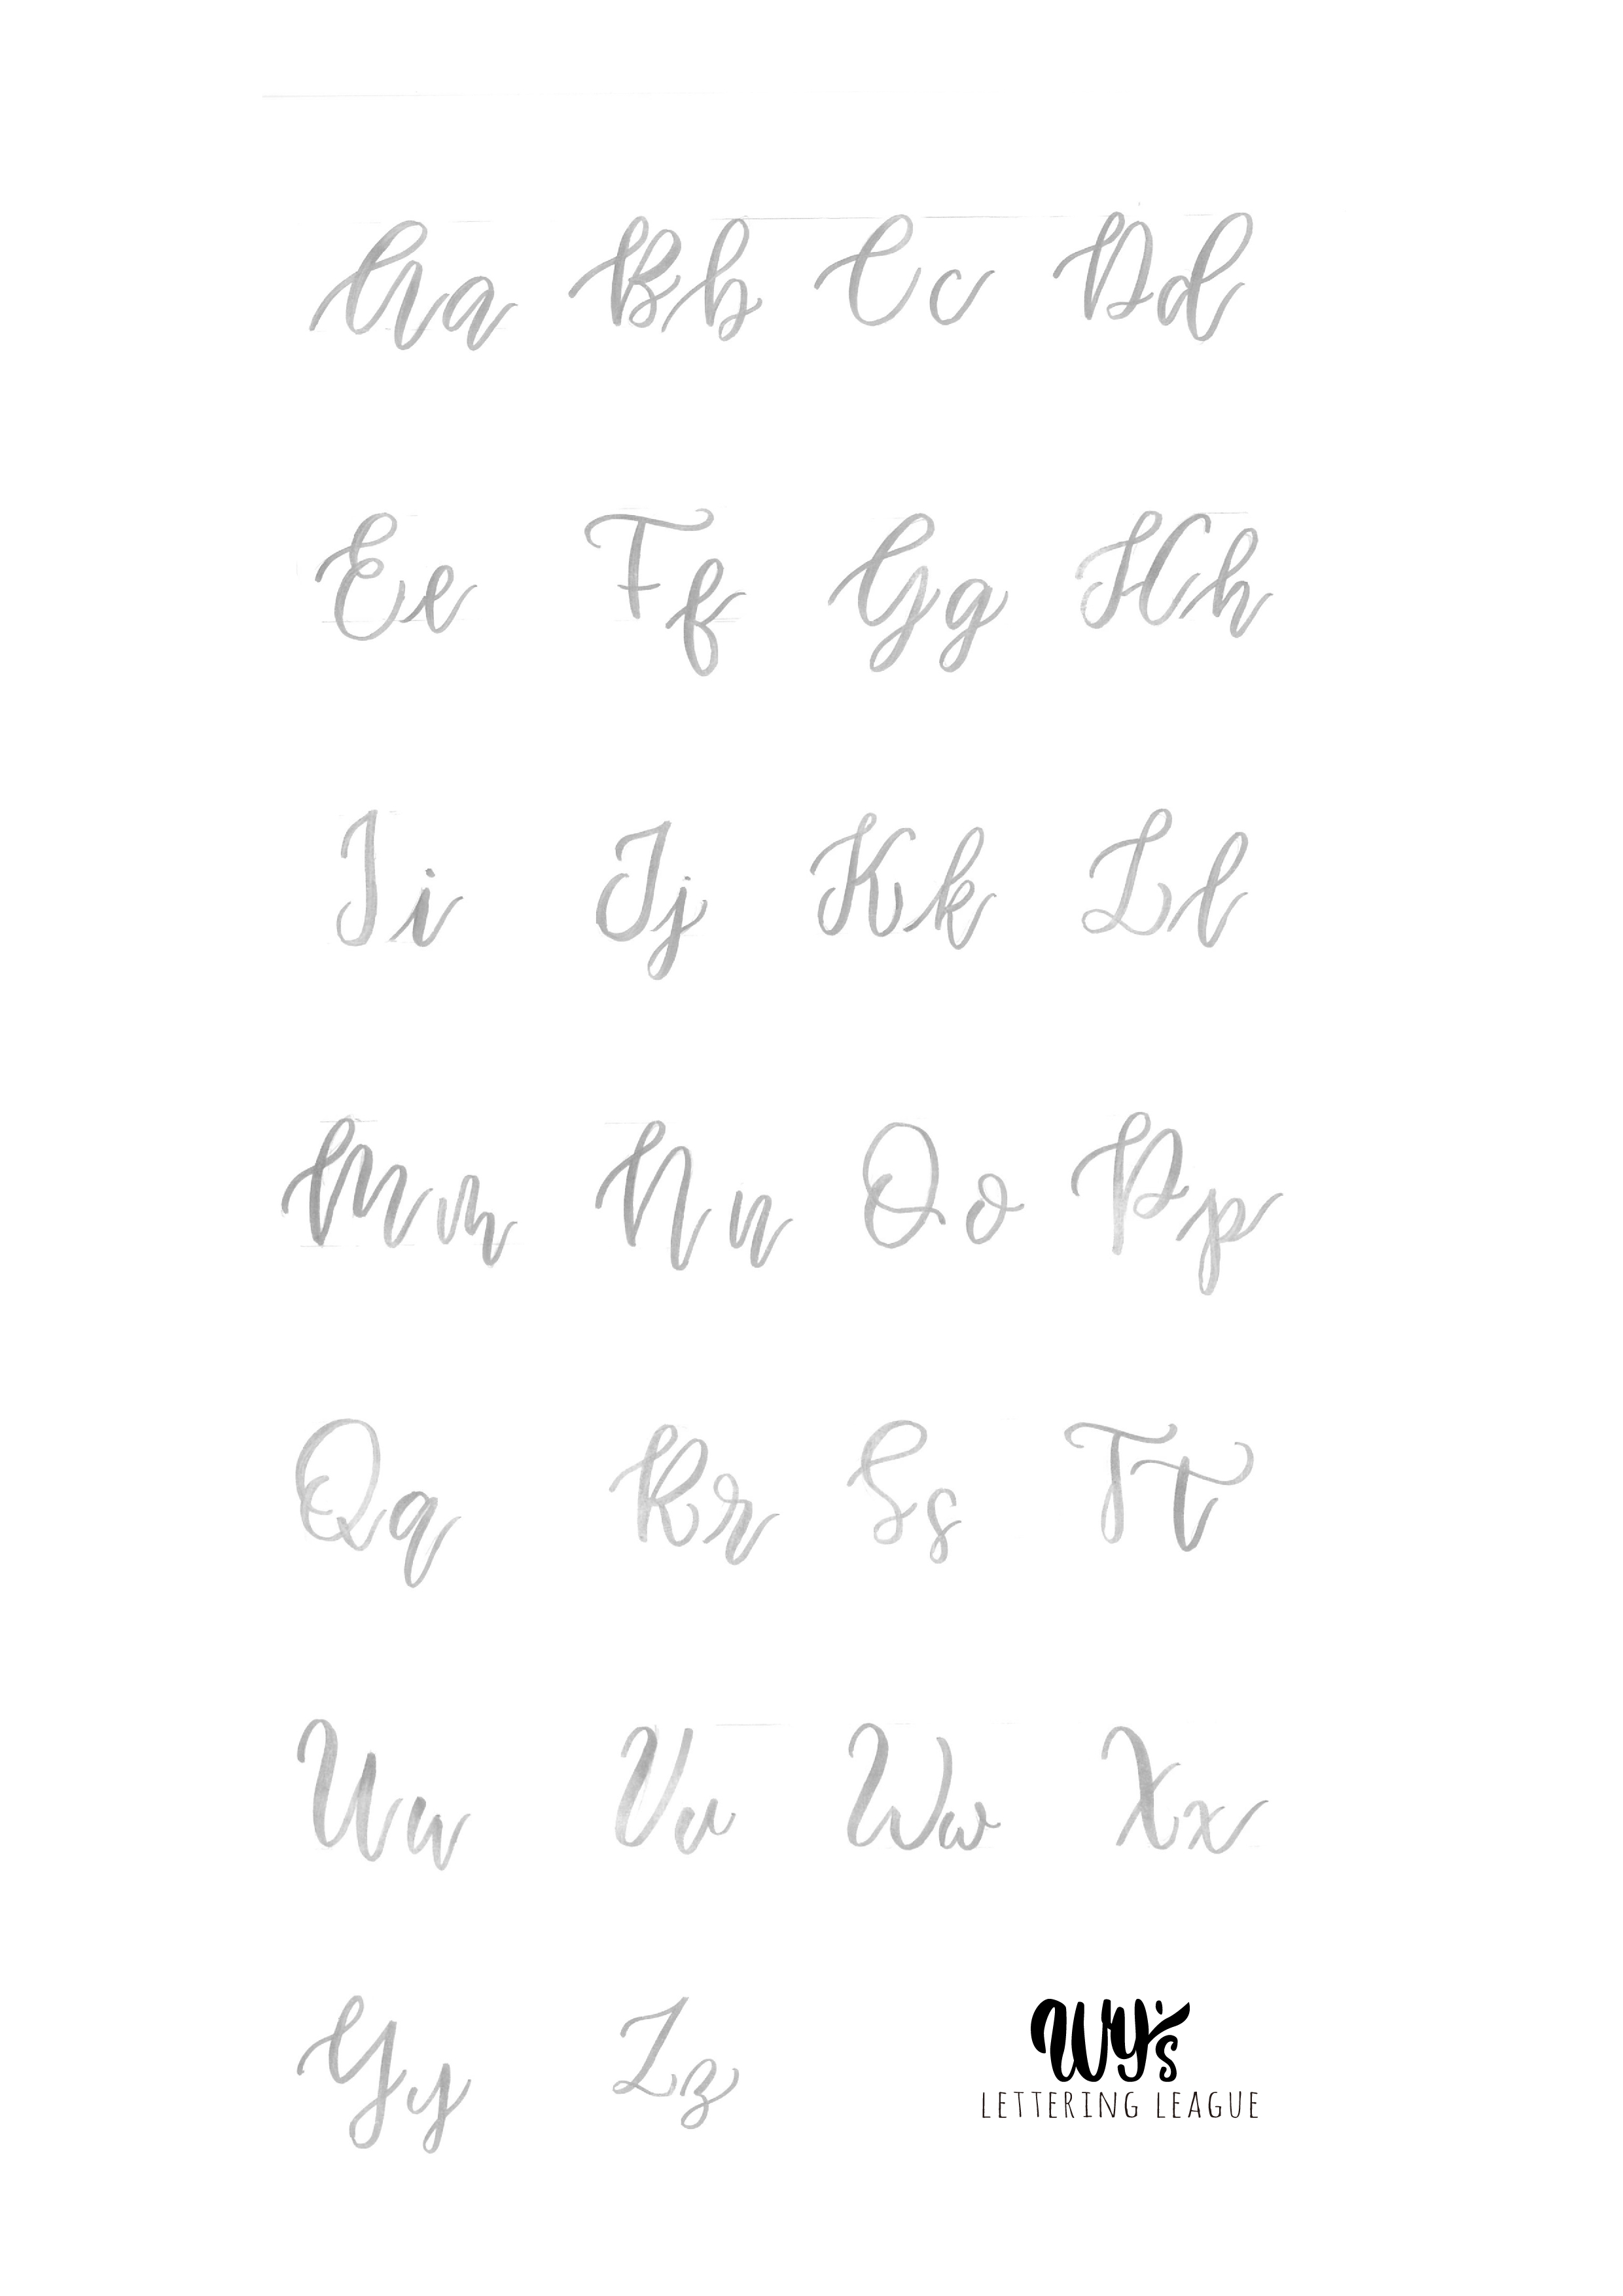 Aa Bb Cc Dd
Ee Ff Gg Hh
Ii Jj Kk Ll
Mm Nn Oo Pp
Qq Rr Ss Tt
Uu Vv Ww Xx
Yy Zz
Wy's
LETTERING LEAGUE